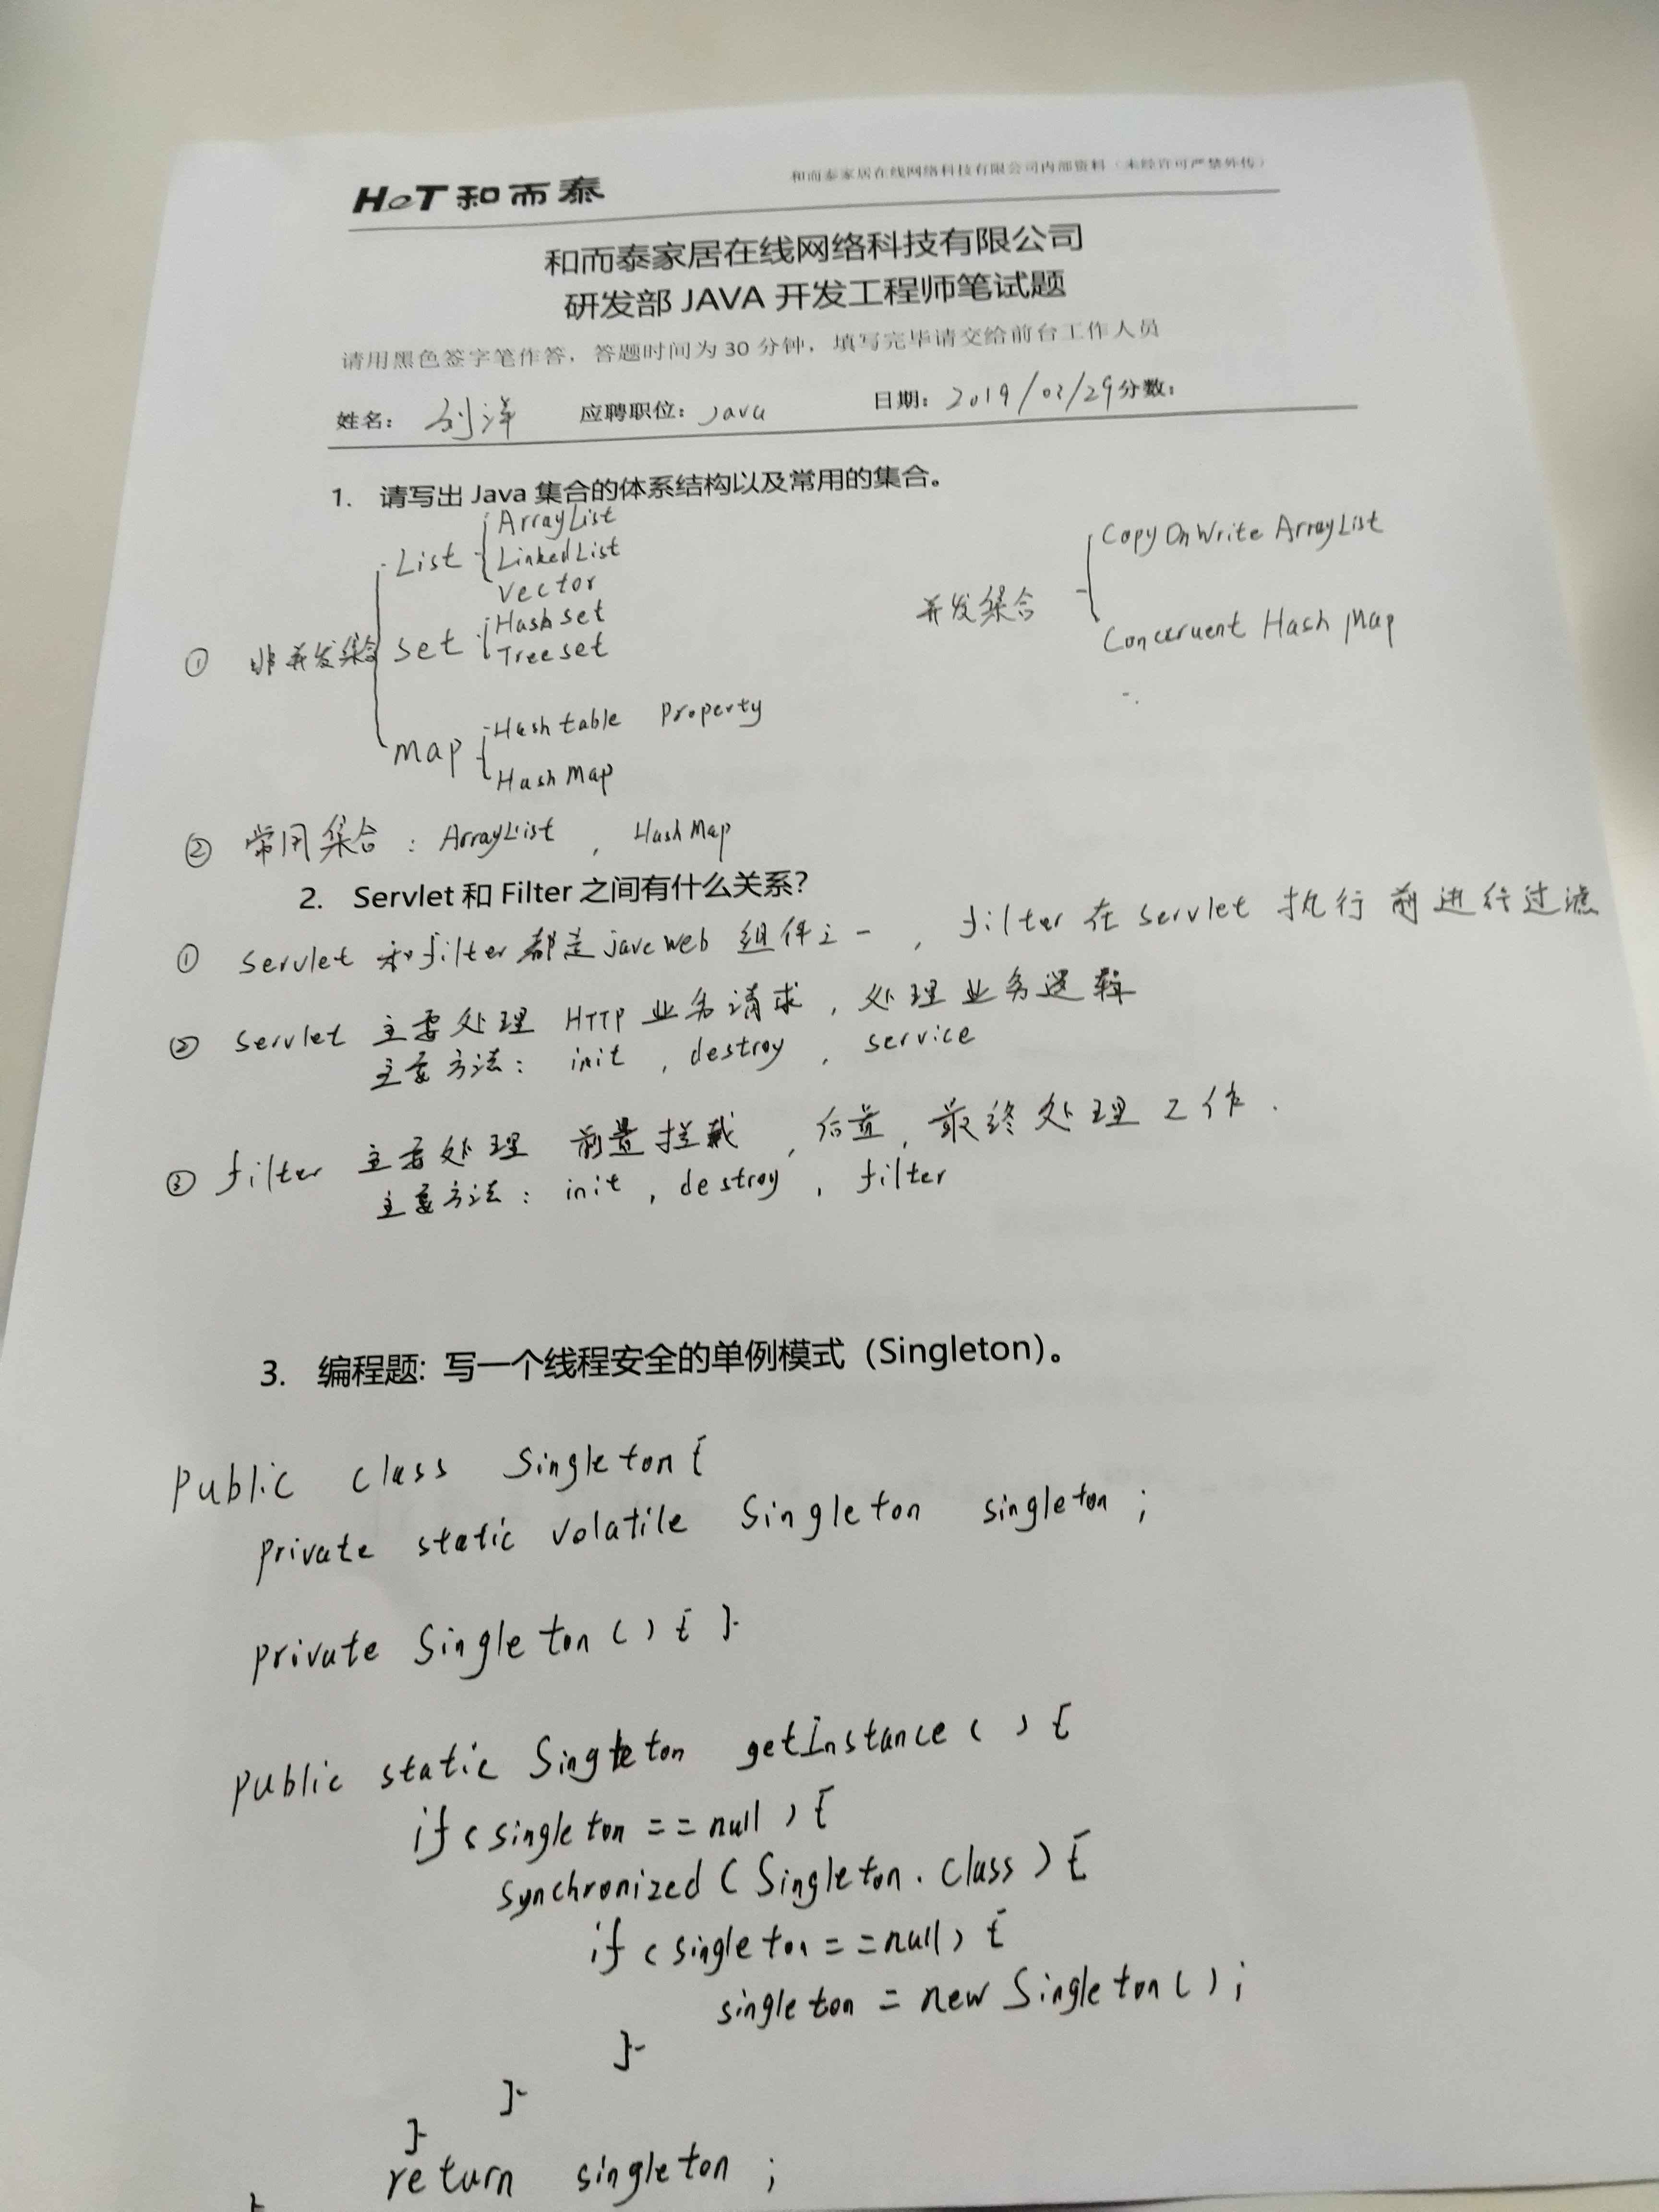 HeT 和而泰
和而泰家居在线网络科技有限公司内部资料（未经许可严禁外传）
和而泰家居在线网络科技有限公司
研发部 JAVA 开发工程师笔试题
请用黑色签字笔作答，答题时间为 30 分钟，填写完毕请交给前台工作人员
姓名： 刘洋 应聘职位：Java 日期：2019/03/29 分数：
1. 请写出 Java 集合的体系结构以及常用的集合。
ArrayList
List LinkedList
Vector
① 非并发集合 Set Hashset
Treeset
Map Hashtable Property
HashMap
并发集合 CopyOnWrite ArrayList
Concuruent Hash Map
② 常用集合：ArrayList，HashMap
2. Servlet 和 Filter 之间有什么关系？
① Servlet 和 filter 都是 jave web 组件之一，filter 在 servlet 执行前进行过滤
② Servlet 主要处理 HTTP 业务请求，处理业务逻辑
主要方法：init，destroy，service
③ filter 主要处理 前置拦截，后置，最终处理工作.
主要方法：init，destroy，filter
3. 编程题：写一个线程安全的单例模式（Singleton）。
Public class Singleton {
private static volatile Singleton singleton;
private Singleton() { }
public static Singleton getInstance() {
if (singleton == null) {
synchronized (Singleton.class) {
if (singleton == null) {
singleton = new Singleton();
}
}
}
return singleton;
}